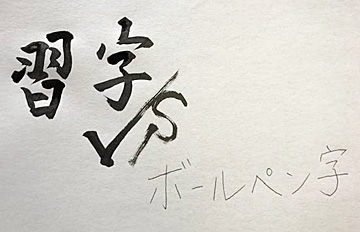 習字
VS
ボールペン字